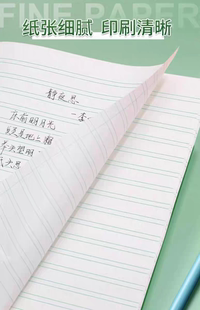 FINE PAPER
纸张细腻 印刷清晰
静夜思
-李
床前明月光
疑是地上霜
举头望明
头思